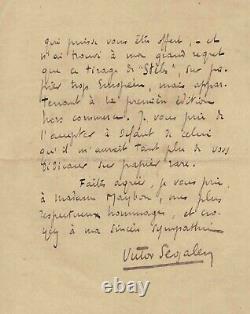 qui puisse vous être offert, – et
n'ai trouvé à mon grand regret
que ce tirage de "Stèles", sur pa-
pier trop Européen, mais appar-
tenant à la première édition
hors commerce. Je vous prie de
l'accepter à défaut de celui
qu'il m'aurait tant plu de vous
dédicacer sur papier rare.
Faites agréer, je vous prie,
à Madame Maybon, mes plus
respectueux hommages, et cro-
yez à ma sincère sympathie
Victor Segalen